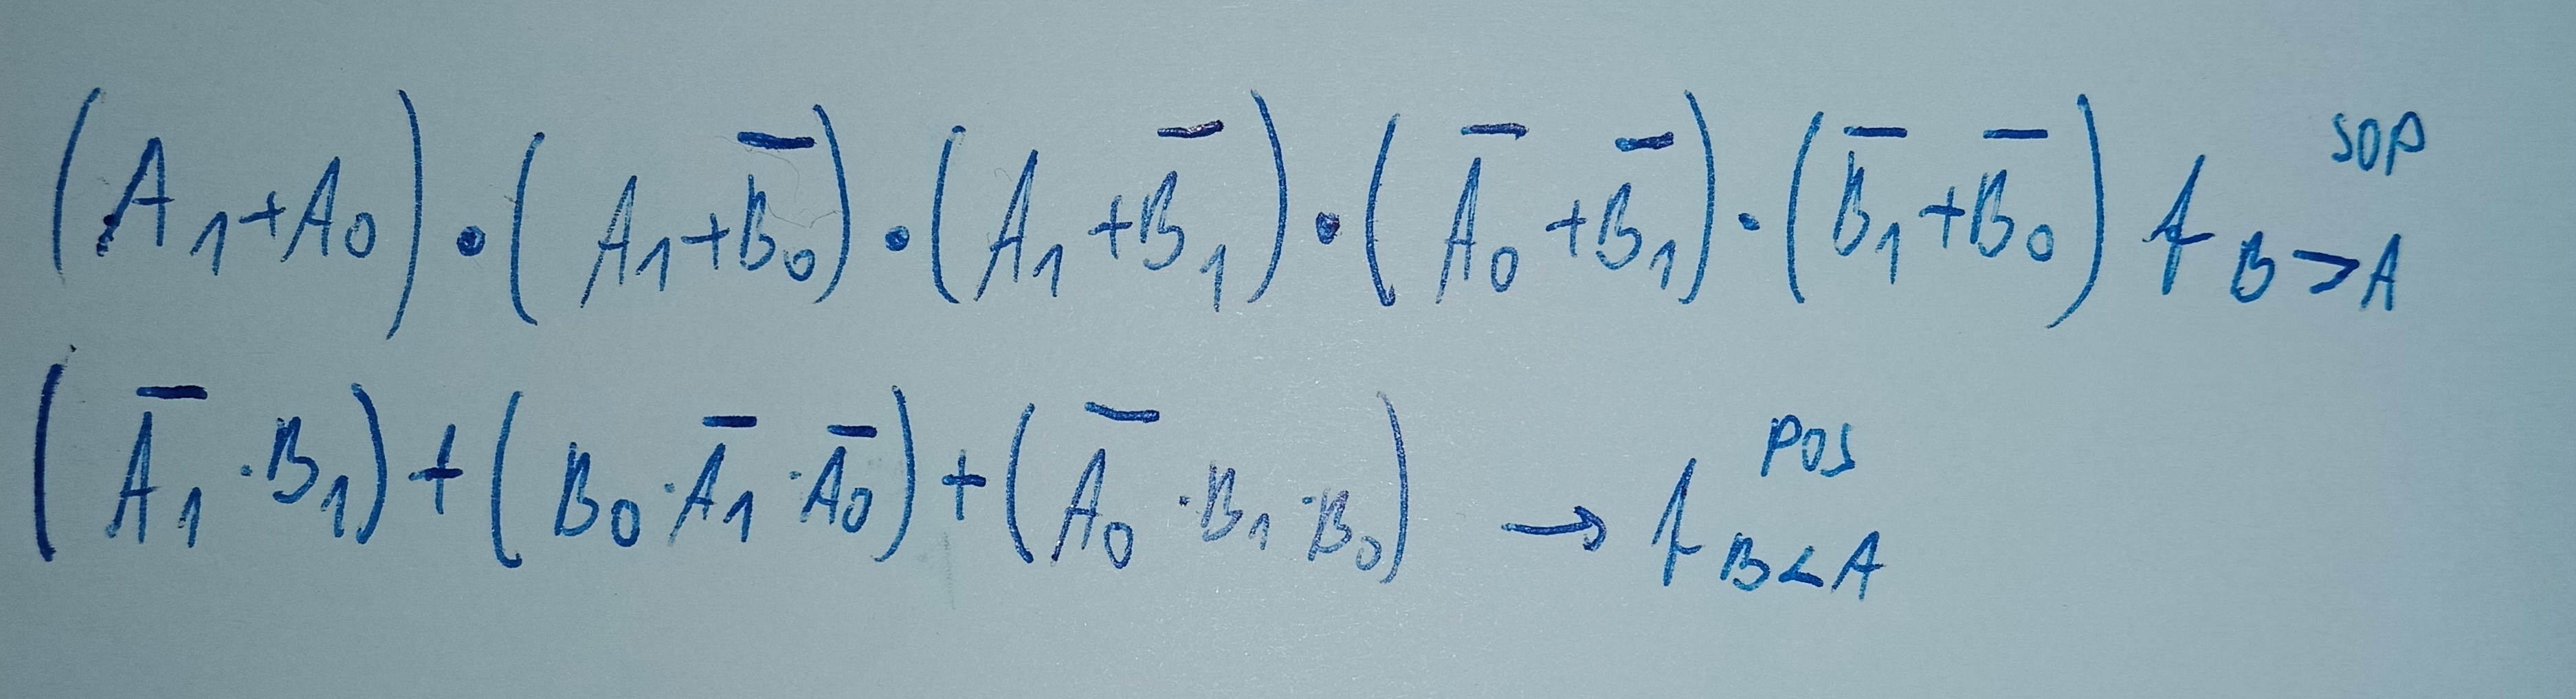 (A₁+A₀)·(A₁+B̅₀)·(A₁+B̅₁)·(A̅₀+B̅₁)·(B̅₁+B̅₀) f_{B>A}^{SOP}
(A̅₁·B₁)+(B₀·A̅₁·A̅₀)+(A̅₀·B₁·B₀) → f_{B<A}^{POS}